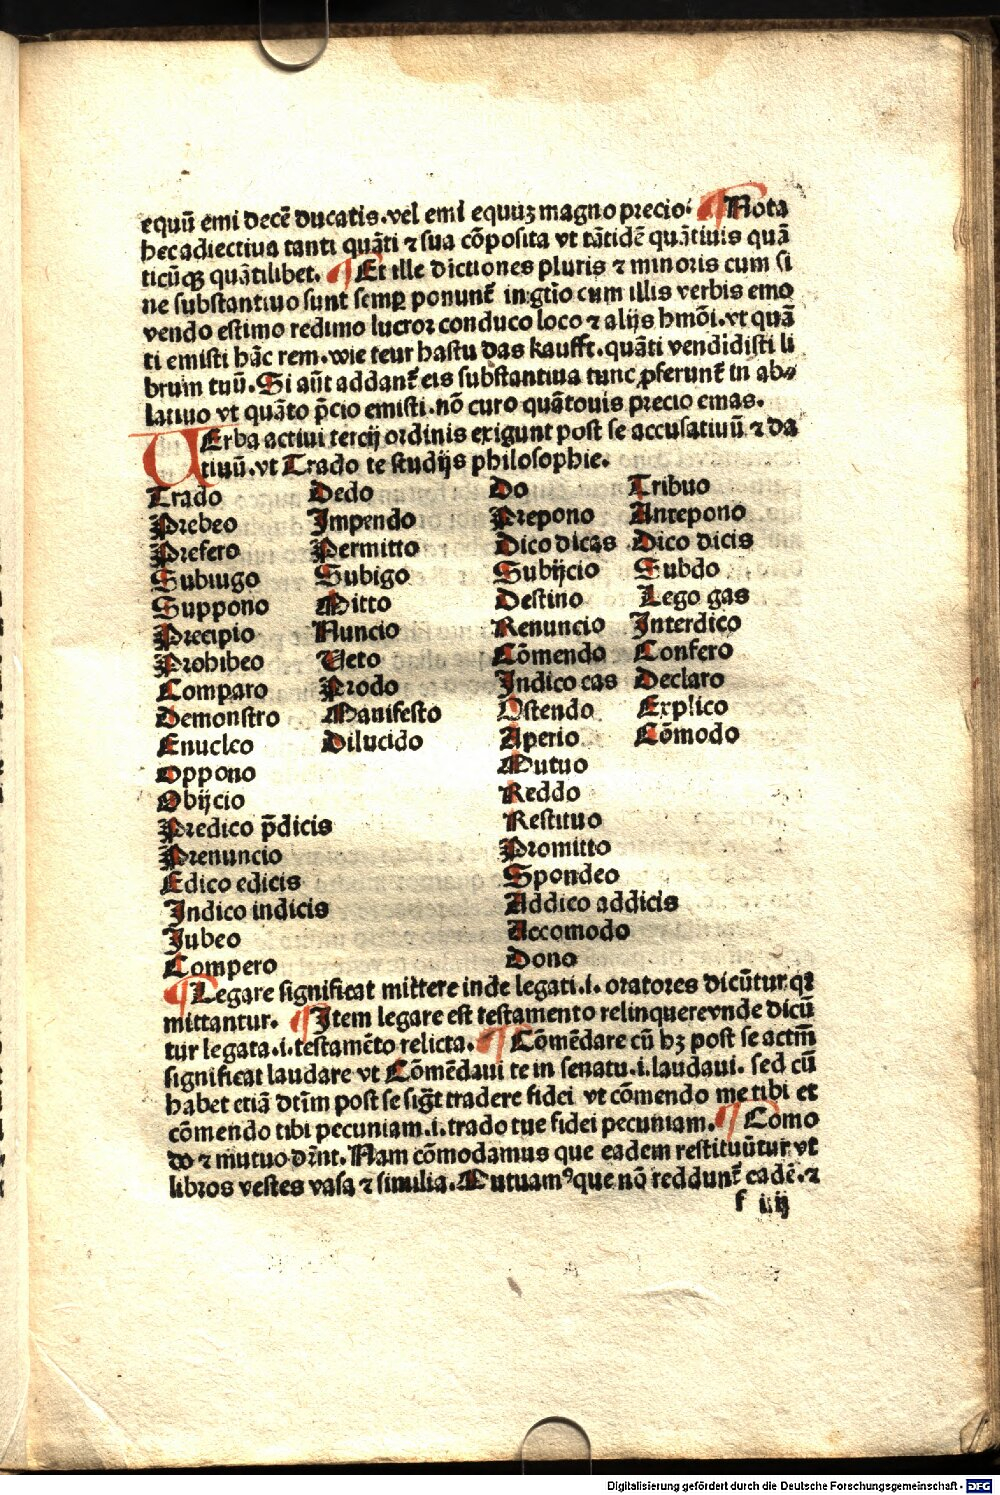 equū emi decē ducatis.vel emi equuꝫ magno precio. ¶ Nota
hec adiectiua tanti quāti ⁊ sua cōposita vt tātidē quātiuis quā
ticūqꝫ quātilibet. ¶ Et ille dictiones pluris ⁊ minoris cum si
ne substantiuo sunt semꝑ ponunt̄ in gt̄io cum illis verbis emo
vendo estimo redimo lucror conduco loco ⁊ alijs hmōi.vt quā
ti emisti hāc rem.wie teur hastu das kaufft.quāti vendidisti li
brum tuū.Si aūt addant̄ eis substantiua tunc ꝓferunt̄ in ab⸗
latiuo vt quāto p̄cio emisti.nō curo quātouis precio emas.
UErba actiui tercij ordinis exigunt post se accusatiuū ⁊ da
tiuū.vt Trado te studijs philosophie.
Trado Dedo Do Tribuo
Prebeo Impendo Prepono Antepono
Prefero Permitto Dico dicas Dico dicis
Subiugo Subigo Subijcio Subdo
Suppono Mitto Destino Lego gas
Precipio Nuncio Renuncio Interdico
Prohibeo Ueto Cōmendo Confero
Comparo Prodo Indico cas Declaro
Demonstro Manifesto Ostendo Explico
Enucleo Dilucido Aperio Cōmodo
Oppono Mutuo
Obijcio Reddo
Predico p̄dicis Restituo
Prenuncio Promitto
Edico edicis Spondeo
Indico indicis Addico addicis
Jubeo Accomodo
Compero Dono
¶ Legare significat mittere inde legati.i. oratores dicūtur qꝛ
mittantur. ¶ Item legare est testamento relinquere vnde dicū
tur legata.i.testamēto relicta. ¶ Cōmēdare cū hꝫ post se actm̄
significat laudare vt Cōmēdaui te in senatu.i.laudaui. sed cū
habet etiā dtīm post se sigt̄ tradere fidei vt cōmendo me tibi et
cōmendo tibi pecuniam.i.trado tue fidei pecuniam. ¶ Como
do ⁊ mutuo dr̄nt.Nam cōmodamus que eadem restituūtur vt
libros vestes vasa ⁊ similia.Mutuamꝰ que nō reddunt̄ eadē.⁊
f iiij
Digitalisierung gefördert durch die Deutsche Forschungsgemeinschaft - DFG